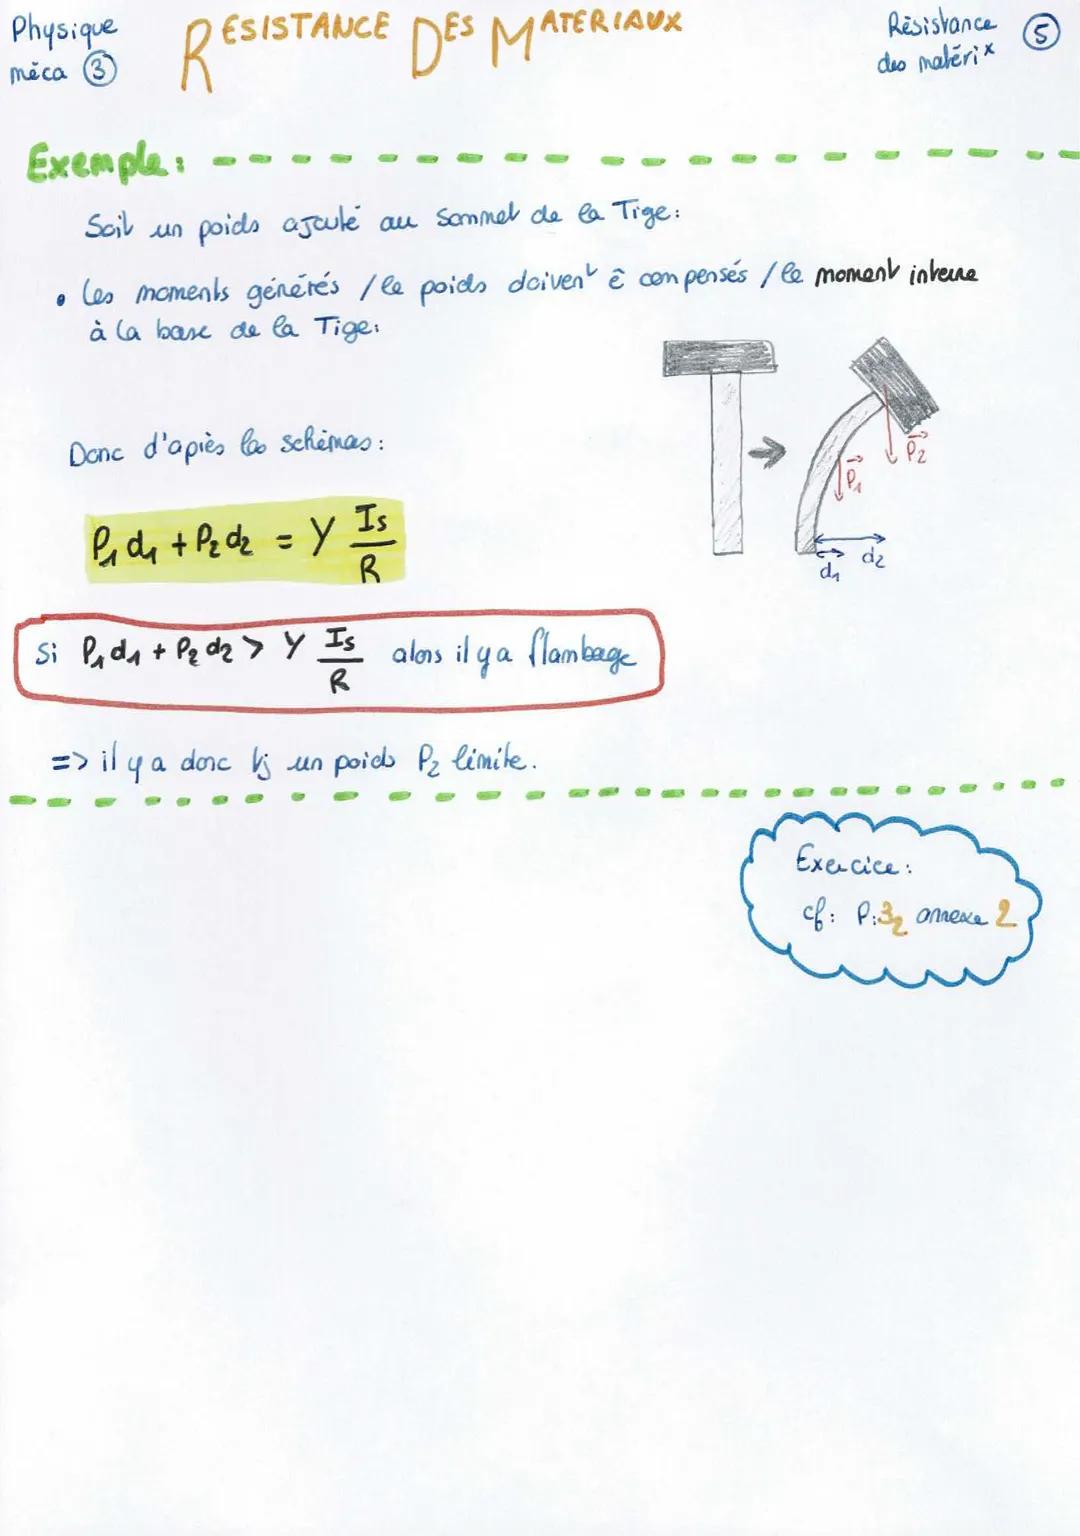 Physique
méca ③
RESISTANCE DES MATERIAUX
Résistance
des matéri^x
⑤
Exemple :
Soit un poids ajouté au sommet de la Tige :
• Les moments générés / le poids doiven^t ê compensés / le moment interne
à la base de la Tige.
Donc d'après les schémas :
P₁ d₁ + P₂ d₂ = Y Is/R
P₁
P₂
d₁
d₂
Si P₁ d₁ + P₂ d₂ > Y Is/R alors il y a flambage
=> il y a donc tj un poids P₂ limite.
Exercice :
cf : P:3₂ annexe 2